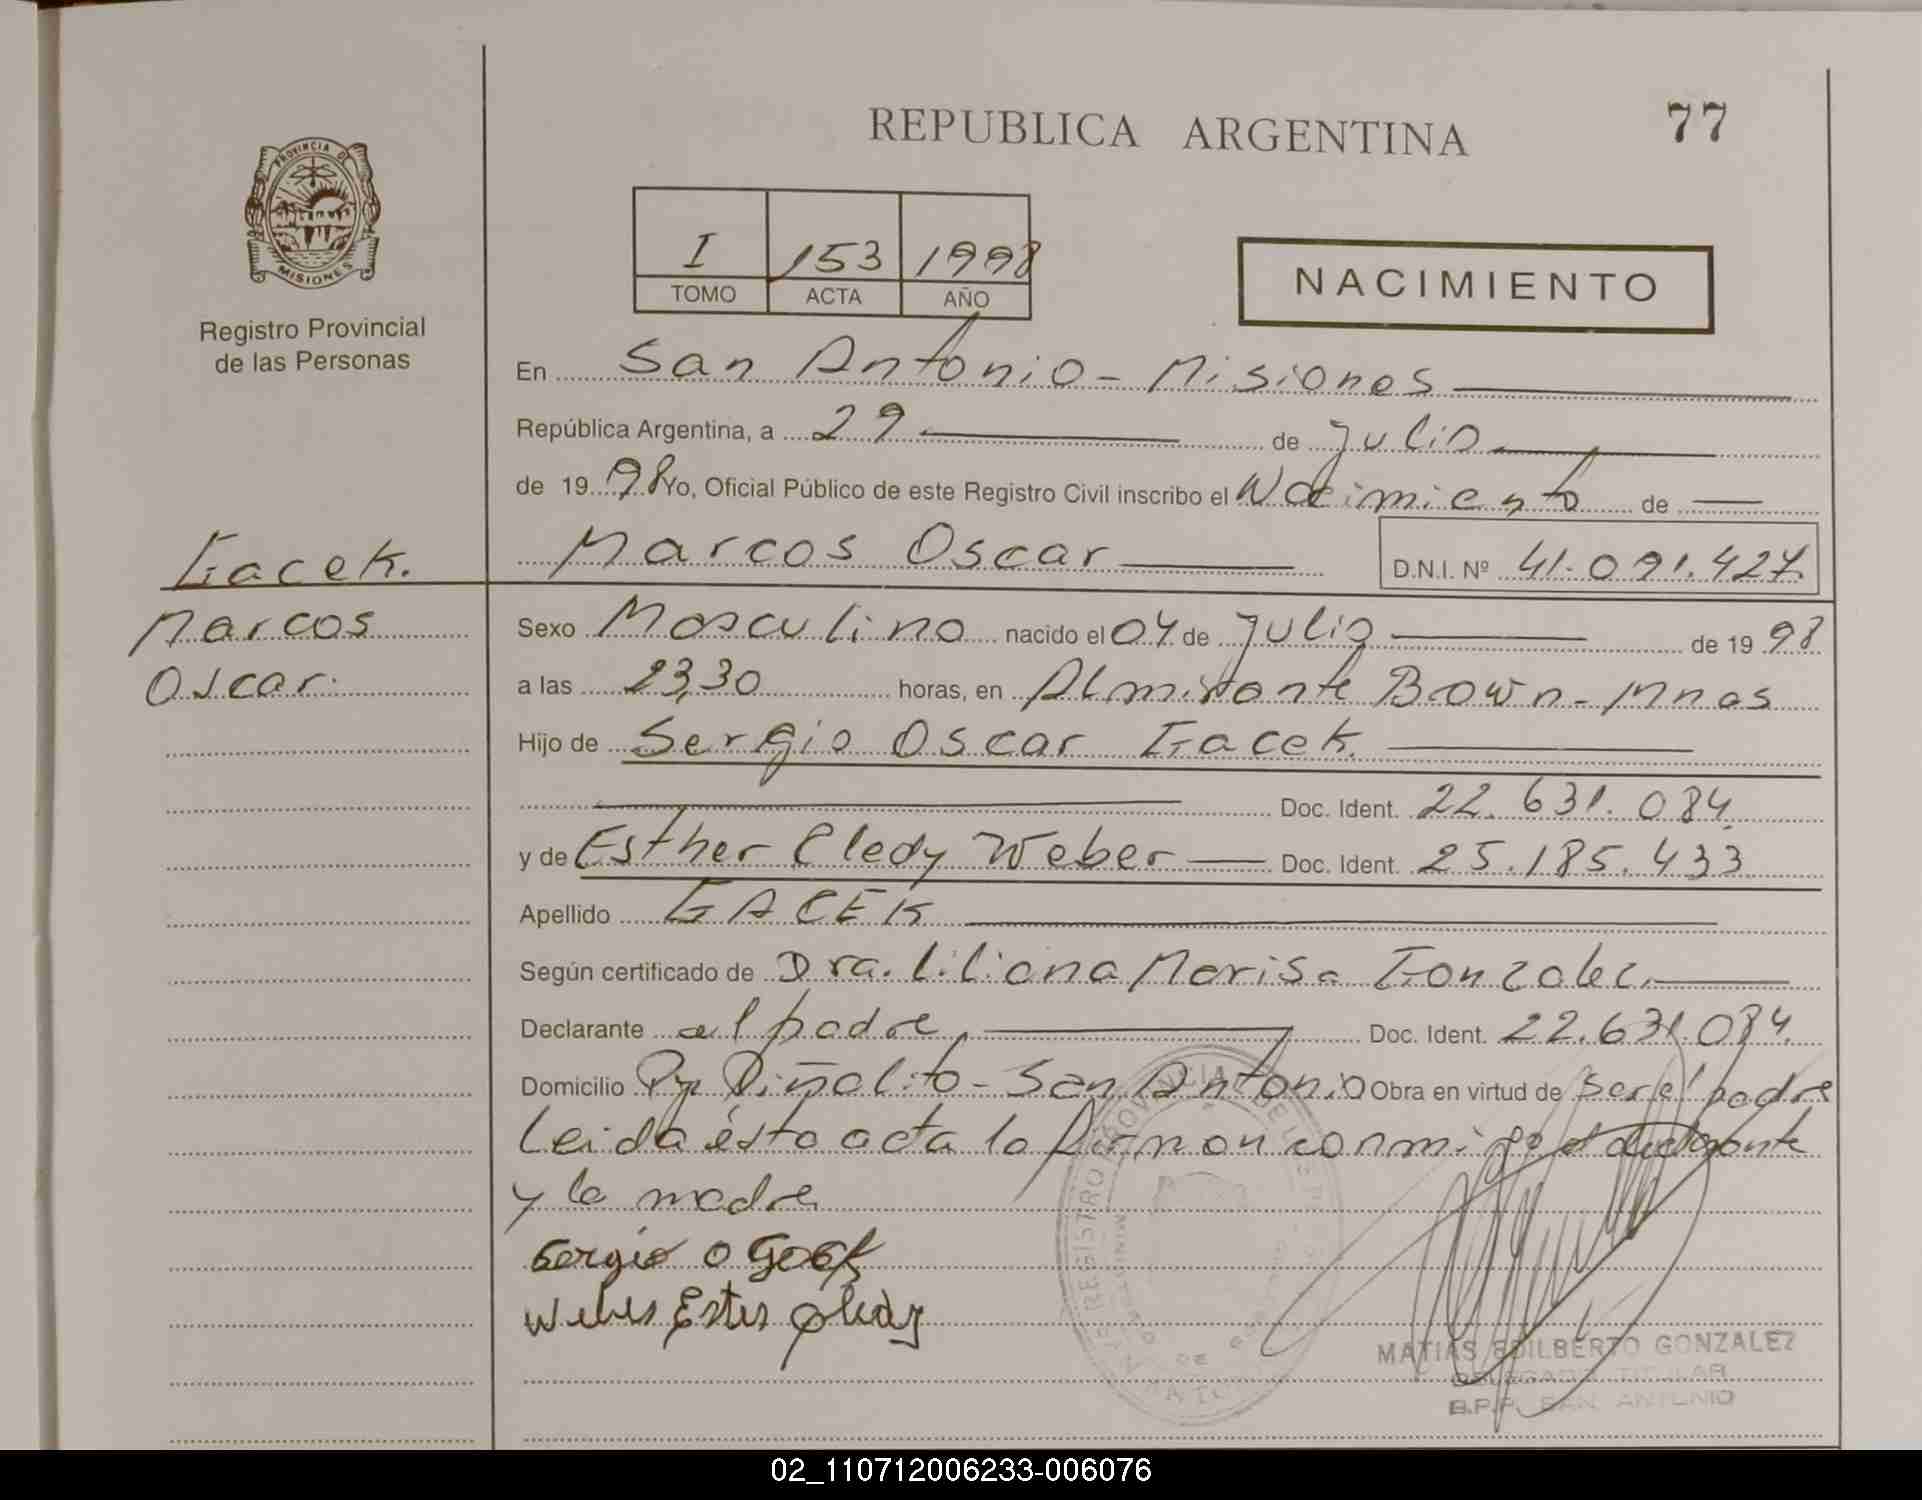 REPUBLICA ARGENTINA
77
PROVINCIA DE
MISIONES
Registro Provincial
de las Personas
I 153 1998
TOMO ACTA AÑO
NACIMIENTO
En San Antonio - Misiones
República Argentina, a 29 de Julio
de 1998 Yo, Oficial Público de este Registro Civil inscribo el Nacimiento de
Marcos Oscar D.N.I. Nº 41.091.427.
Gacek.
Marcos
Oscar.
Sexo Masculino nacido el 04 de Julio de 1998
a las 23,30 horas, en Almirante Brown - Mnes
Hijo de Sergio Oscar Gacek.
Doc. Ident. 22.631.084.
y de Esther Cledy Weber Doc. Ident. 25.185.433
Apellido GACEK
Según certificado de Dra. Liliana Marisa Gonzalez.
Declarante el padre, Doc. Ident. 22.631.084.
Domicilio Piñalito - San Antonio Obra en virtud de ser el padre
Leida ésta acta la firman conmigo el declarante
y la madre
Sergio O Gacek
Weber Ester Cledy
MATIAS EDILBERTO GONZALEZ
DELEGADO TITULAR
B.P.P. SAN ANTONIO
02_110712006233-006076